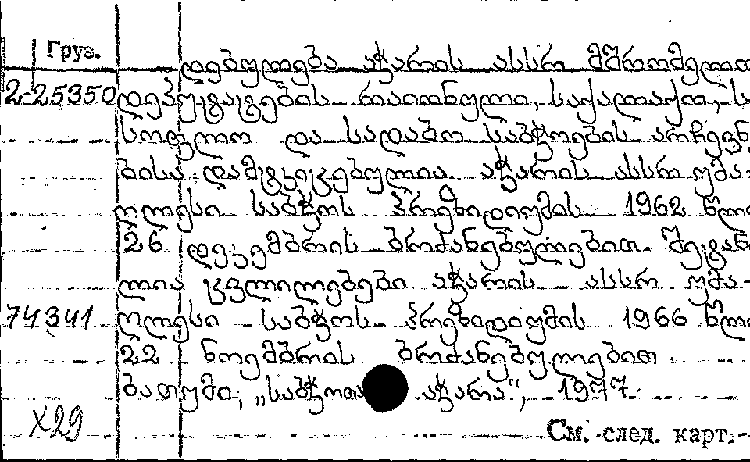 Груз.
დებულება აჭარის ასსრ მშრომელთა
2-25350 დეპუტატების რაიონული, საქალაქო, სა
სოფლო და სადაბო საბჭოების არჩევნე
ბისა. დამტკიცებულია აჭარის ასსრ უმა-
ღლესი საბჭოს პრეზიდიუმის 1962 წლის
26 დეკემბრის ბრძანებულებით. შეტანი
ლია ცვლილებები აჭარის ასსრ უმა-
74341 ღლესი საბჭოს პრეზიდიუმის 1966 წლის
22 ნოემბრის ბრძანებულებით
ბათუმი, „საბჭოთა აჭარა", 1977.
X29
См. след. карт.